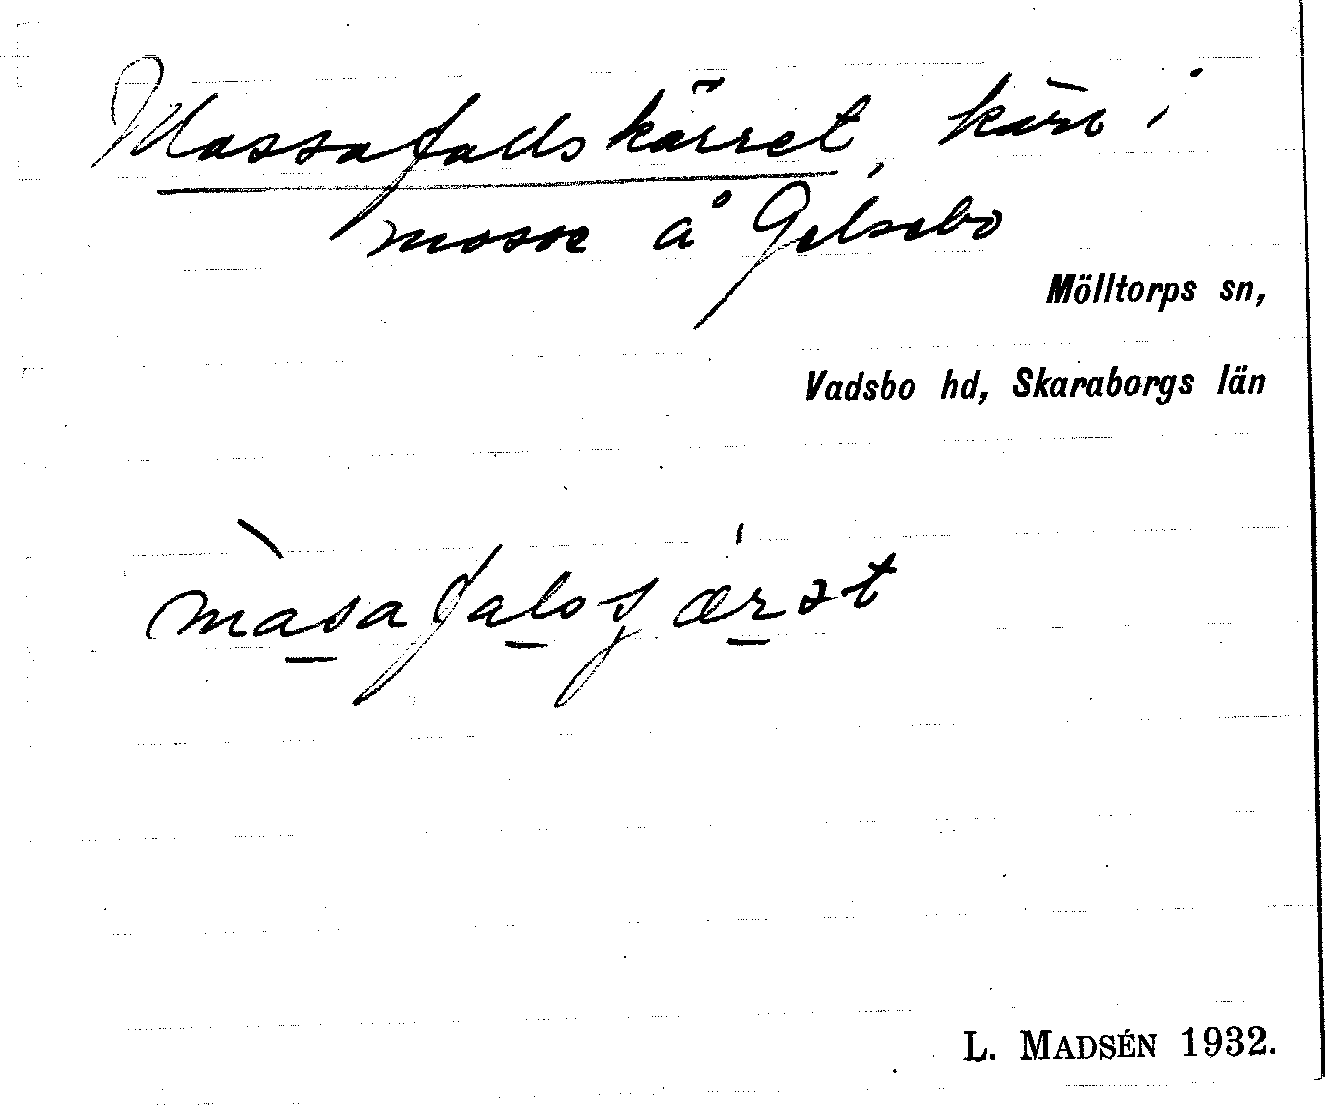 Massafallskärret, kärr i
mosse å Gelsebo
Mölltorps sn,
Vadsbo hd, Skaraborgs län
L. MADSÉN 1932.